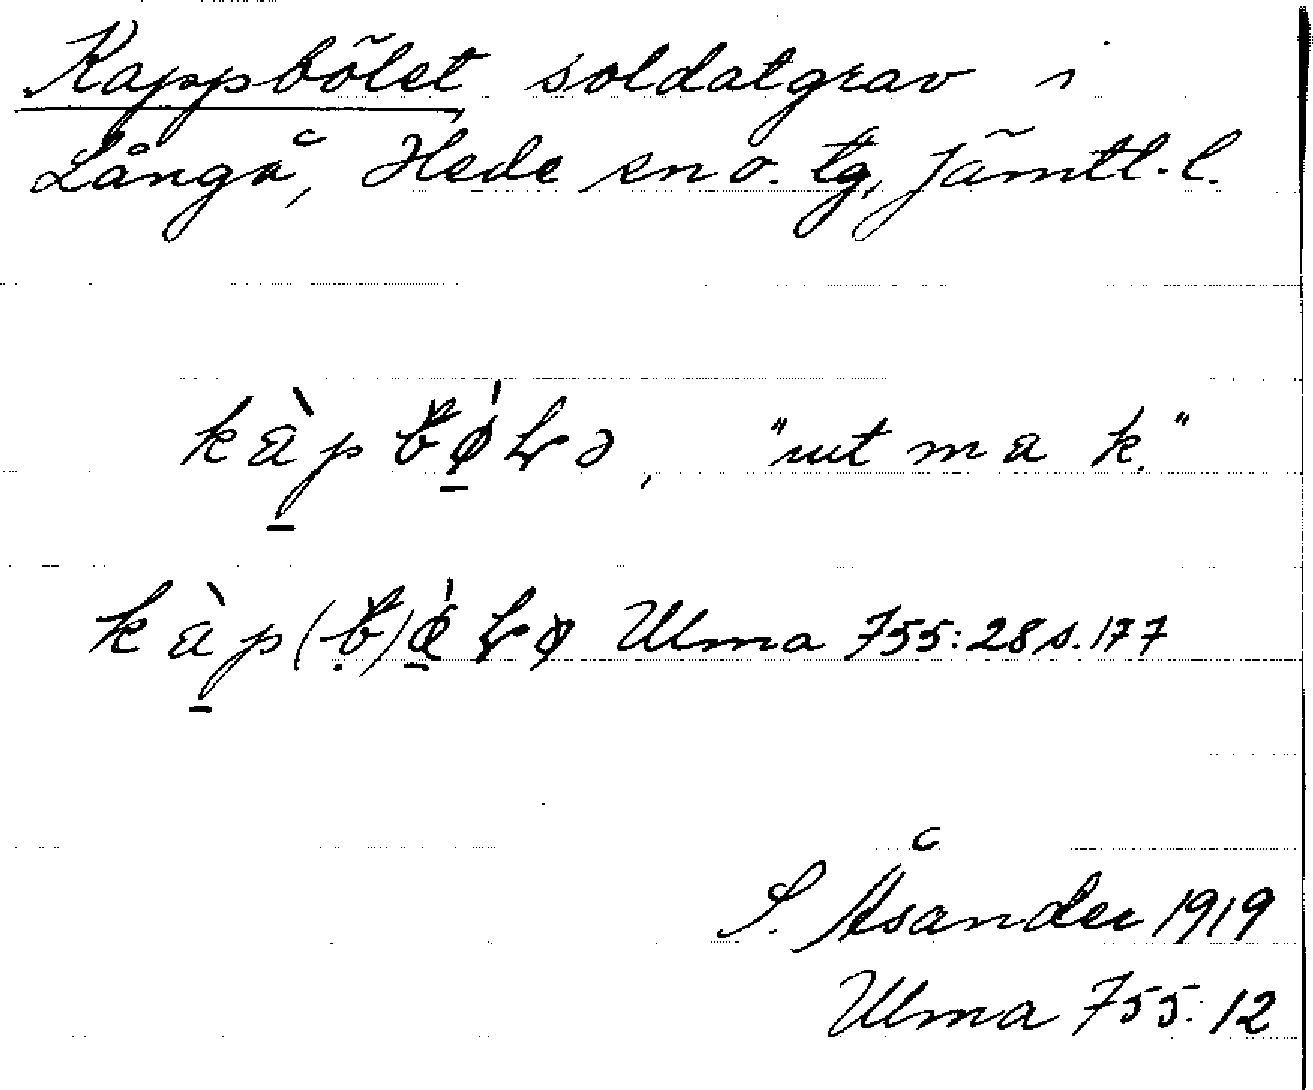 Kappbölet soldatgrav i
Långå, Hede sn o. tg, Jämtl. l.
kàpbø̀lə, "ut m a k."
kàp(b)ǿlø Ulma 755:28 s. 177
S. Åsander 1919
Ulma 755:12